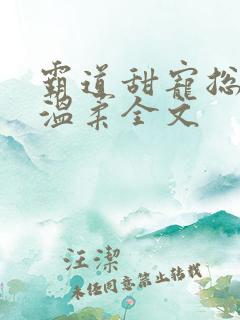 霸道甜寵总
温柔全文
汪潔
未经同意禁止转载